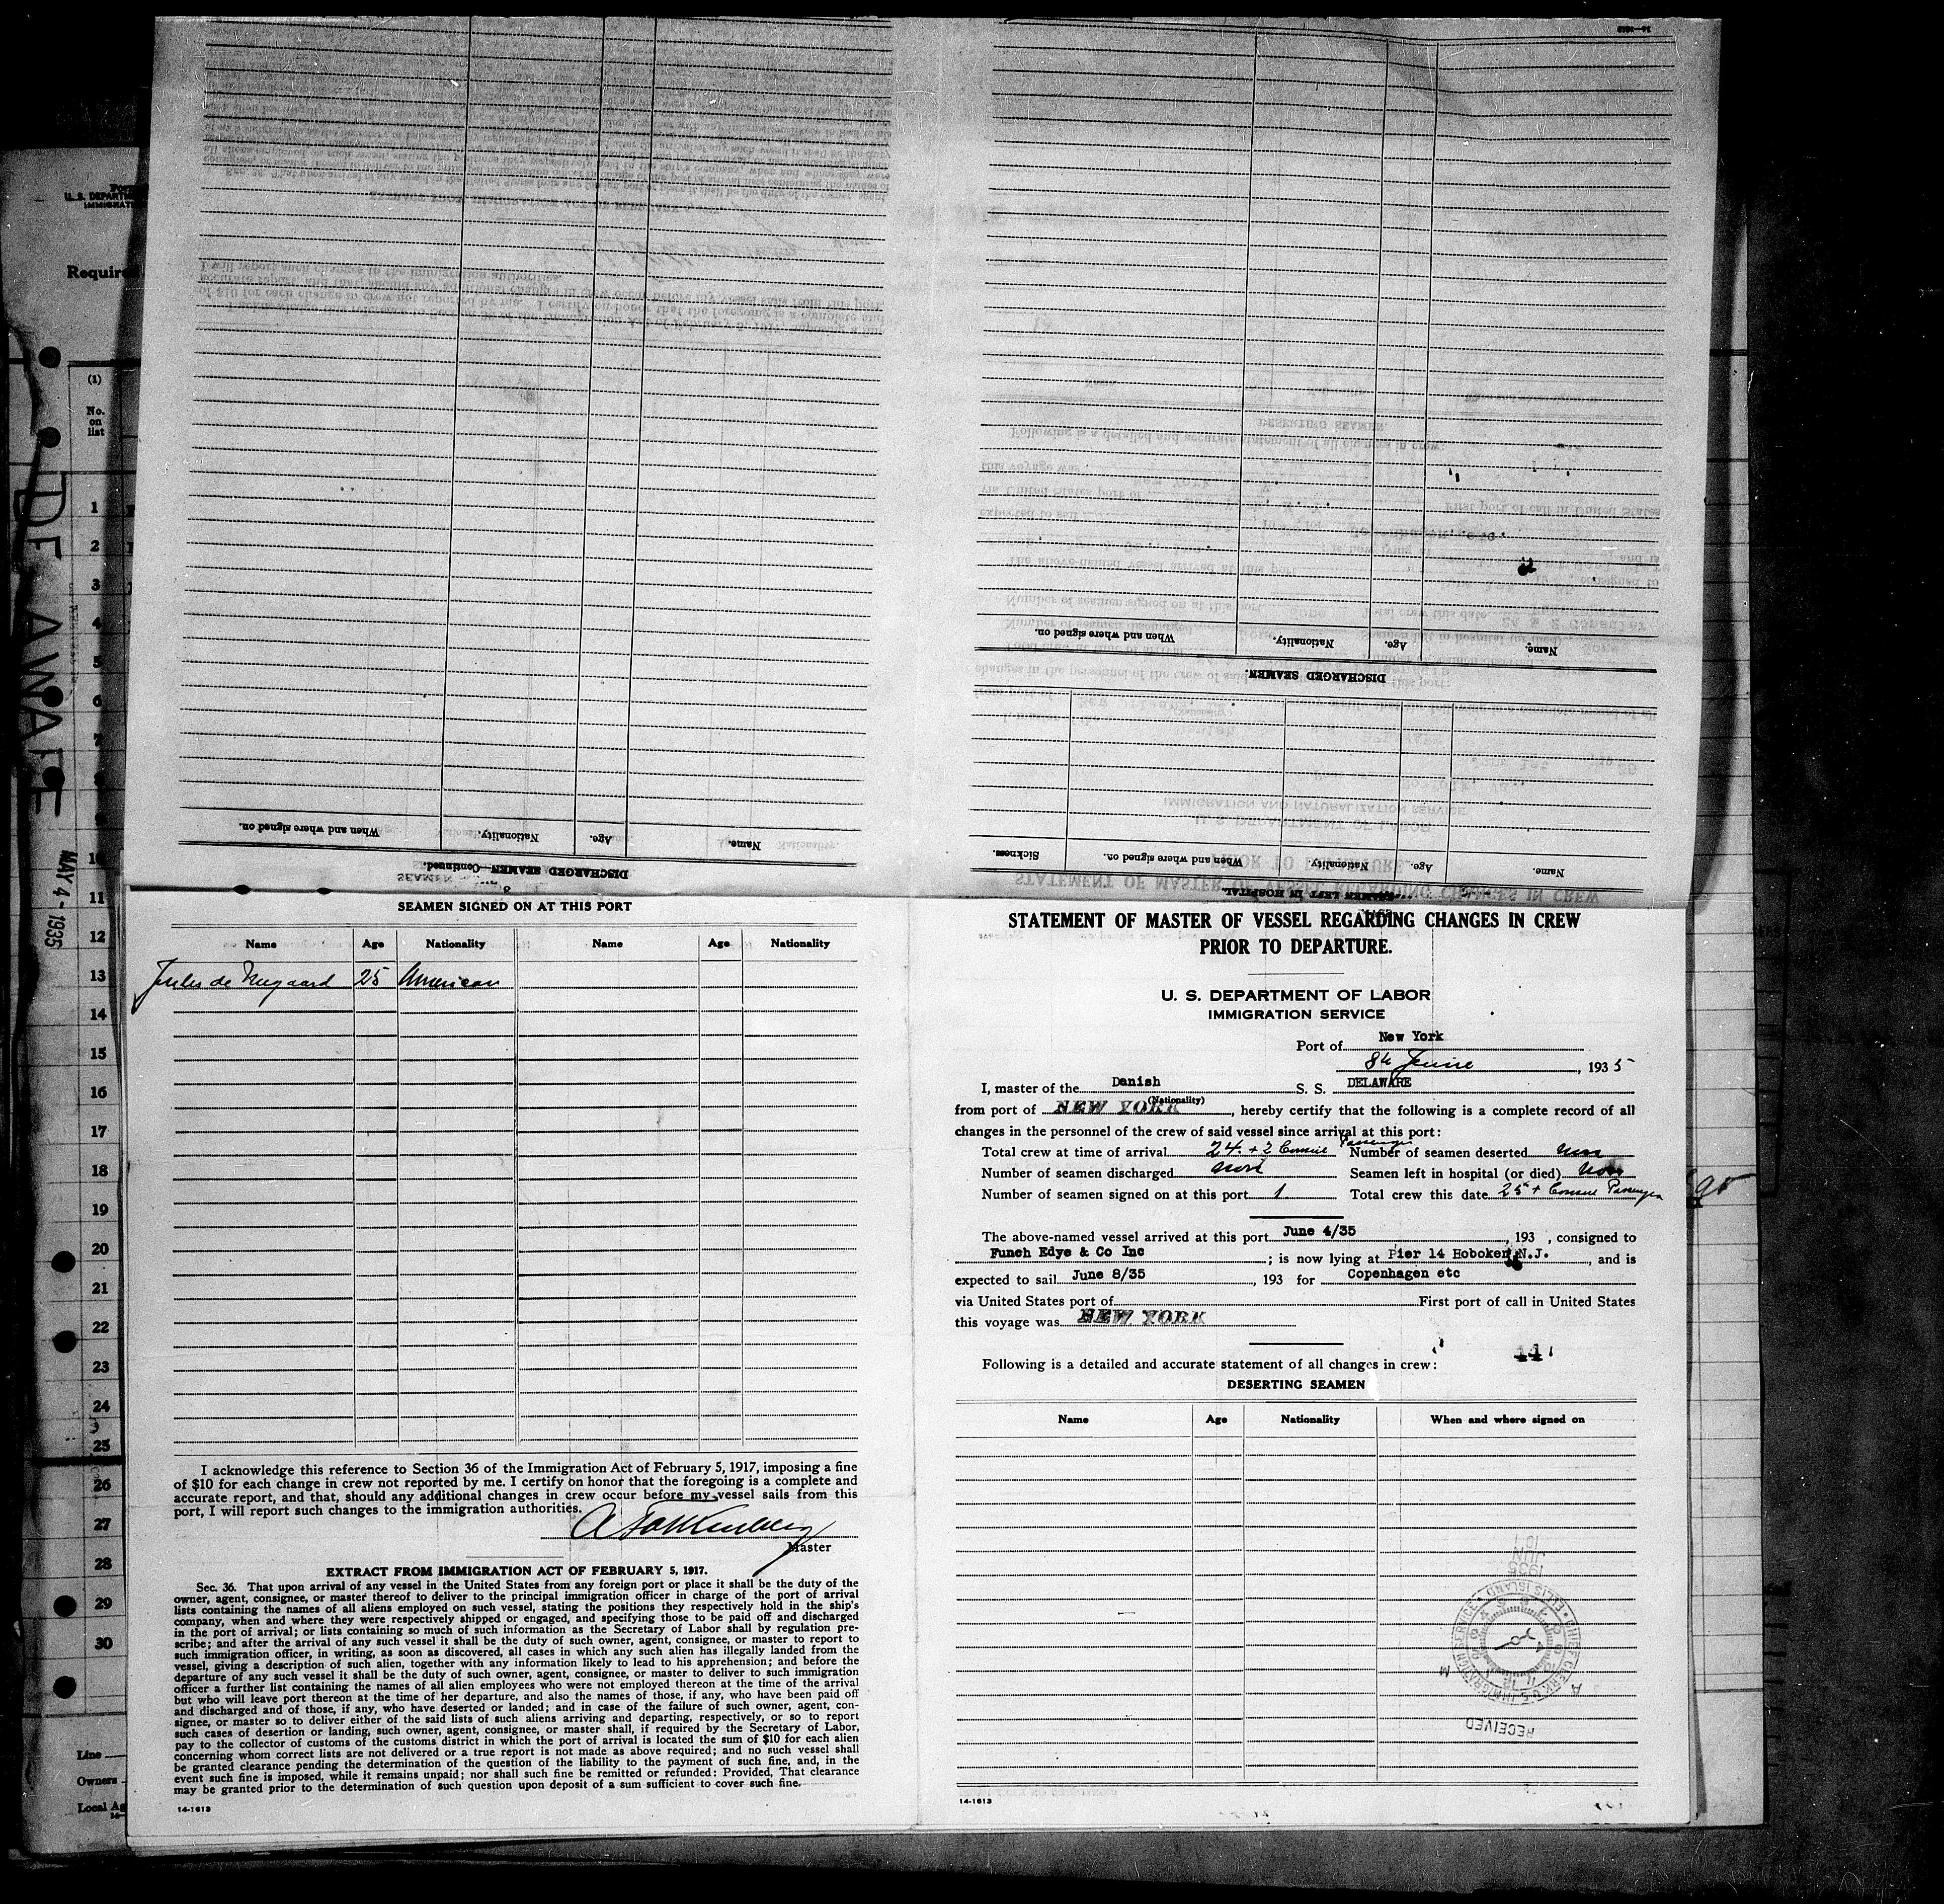 SEAMEN SIGNED ON AT THIS PORT
Name Age Nationality Name Age Nationality
Jules de 25 American
I acknowledge this reference to Section 36 of the Immigration Act of February 5, 1917, imposing a fine
of $10 for each change in crew not reported by me. I certify on honor that the foregoing is a complete and
accurate report, and that, should any additional changes in crew occur before my vessel sails from this
port, I will report such changes to the immigration authorities.
Master
EXTRACT FROM IMMIGRATION ACT OF FEBRUARY 5, 1917.
Sec. 36. That upon arrival of any vessel in the United States from any foreign port or place it shall be the duty of the
owner, agent, consignee, or master thereof to deliver to the principal immigration officer in charge of the port of arrival
lists containing the names of all aliens employed on such vessel, stating the positions they respectively hold in the ship's
company, when and where they were respectively shipped or engaged, and specifying those to be paid off and discharged
in the port of arrival; or lists containing so much of such information as the Secretary of Labor shall by regulation pre-
scribe; and after the arrival of any such vessel it shall be the duty of such owner, agent, consignee, or master to report to
such immigration officer, in writing, as soon as discovered, all cases in which any such alien has illegally landed from the
vessel, giving a description of such alien, together with any information likely to lead to his apprehension; and before the
departure of any such vessel it shall be the duty of such owner, agent, consignee, or master to deliver to such immigration
officer a further list containing the names of all alien employees who were not employed thereon at the time of the arrival
but who will leave port thereon at the time of her departure, and also the names of those, if any, who have been paid off
and discharged and of those, if any, who have deserted or landed; and in case of the failure of such owner, agent, con-
signee, or master so to deliver either of the said lists of such aliens arriving and departing, respectively, or so to report
such cases of desertion or landing, such owner, agent, consignee, or master shall, if required by the Secretary of Labor,
pay to the collector of customs of the customs district in which the port of arrival is located the sum of $10 for each alien
concerning whom correct lists are not delivered or a true report is not made as above required; and no such vessel shall
be granted clearance pending the determination of the question of the liability to the payment of such fine, and, in the
event such fine is imposed, while it remains unpaid; nor shall such fine be remitted or refunded: Provided, That clearance
may be granted prior to the determination of such question upon deposit of a sum sufficient to cover such fine.
14-1613
STATEMENT OF MASTER OF VESSEL REGARDING CHANGES IN CREW
PRIOR TO DEPARTURE.
U. S. DEPARTMENT OF LABOR
IMMIGRATION SERVICE
Port of New York
8th June, 1935
I, master of the Danish S. S. DELAWARE
(Nationality)
from port of NEW YORK, hereby certify that the following is a complete record of all
changes in the personnel of the crew of said vessel since arrival at this port:
Total crew at time of arrival 24 + 2 Consul Passenger Number of seamen deserted None
Number of seamen discharged None Seamen left in hospital (or died) None
Number of seamen signed on at this port 1 Total crew this date 25 + Consul Passenger
The above-named vessel arrived at this port June 4/35, 193 , consigned to
Funch Edye & Co Inc; is now lying at Pier 14 Hoboken, N.J., and is
expected to sail June 8/35, 193 for Copenhagen etc
via United States port of First port of call in United States
this voyage was NEW YORK
Following is a detailed and accurate statement of all changes in crew:
DESERTING SEAMEN
Name Age Nationality When and where signed on
14-1613
RECEIVED
DISCHARGED SEAMEN—Continued.
Name. Age. Nationality. When and where signed on.
SEAMEN LEFT IN HOSPITAL.
Name. Age. Nationality. When and where signed on. Sickness.
DISCHARGED SEAMEN.
Name. Age. Nationality. When and where signed on.
Require
(1)
No.
on
list
DELAWARE
MAY 4 - 1935
1
2
3
4
5
6
7
8
9
10
11
12
13
14
15
16
17
18
19
20
21
22
23
24
25
26
27
28
29
30
Line
Owners
Local Ag